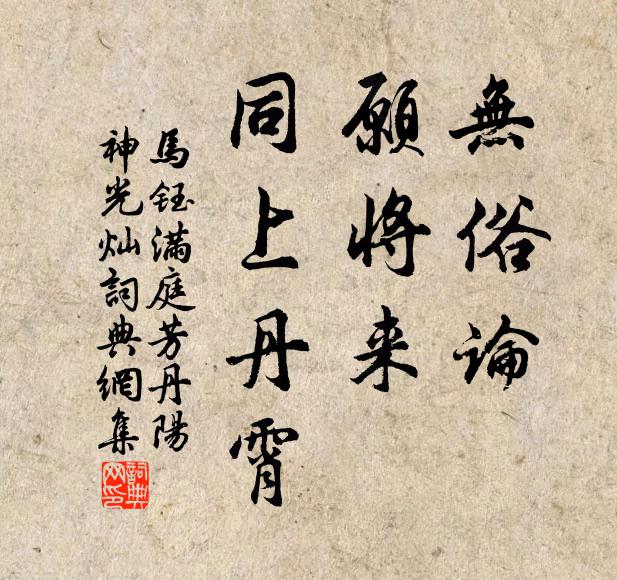 無俗論
願將来
同上丹霄
馬鈺滿庭芳丹陽
神光灿詞典網集
詞典网印